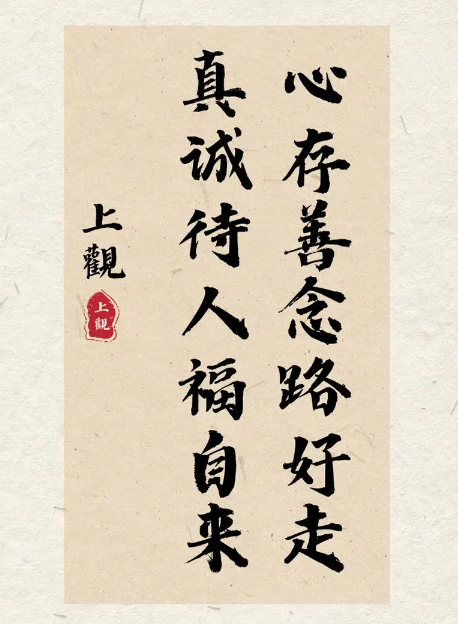 心存善念路好走
真誠待人福自来
上觀
上觀